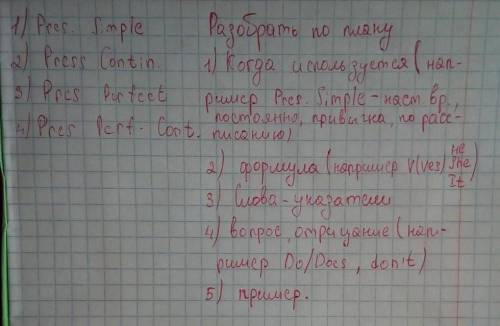 1) Pres. Simple
2) Press Contin.
3) Pres Perfect
4) Pres Perf - Cont.
Разобрать по плану
1) Когда используется (нап-
ример Pres. Simple - наст вр.,
постоянно, привычка, по расс-
писанию)
2) формула (например V(ves) he
She
It)
3) Слова - указатели
4) вопрос, отрицание (нап-
ример Do/Does, don't)
5) пример.